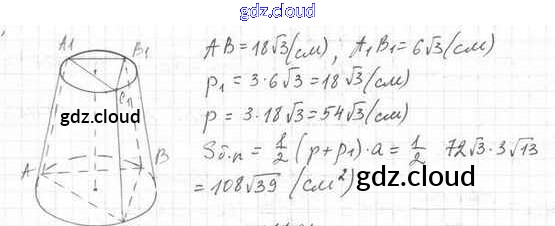 gdz.cloud
A1 B1
C1
gdz.cloud
A B
AB = 18√3 (см); A₁B₁ = 6√3 (см)
p₁ = 3·6√3 = 18√3 (см)
p = 3·18√3 = 54√3 (см)
Sб.п = 1/2 (p+p₁)·a = 1/2 72√3·3√13
= 108√39 (см²)
gdz.cloud